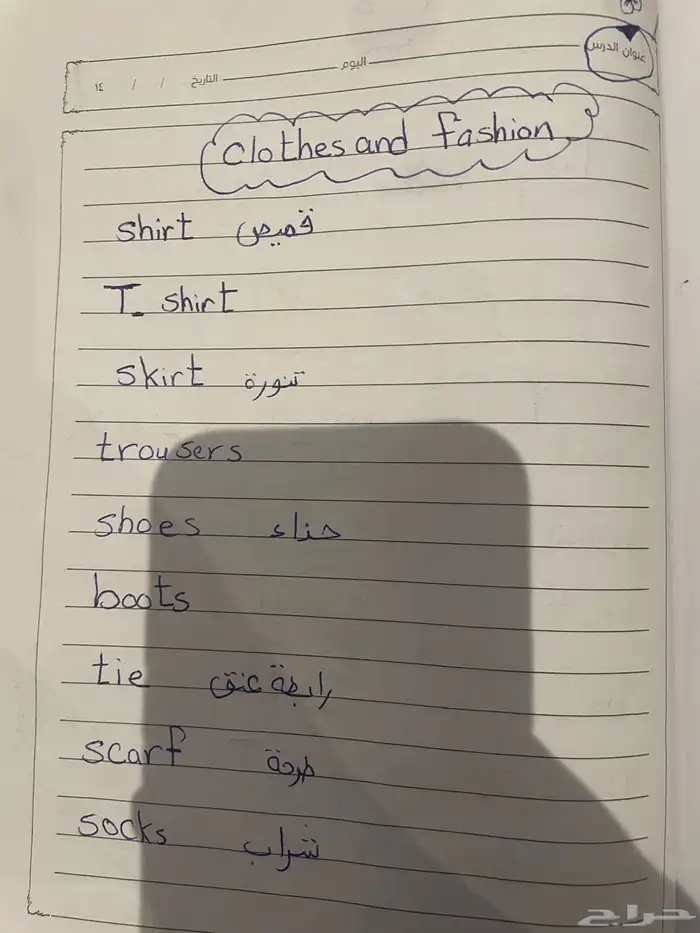 عنوان الدرس
اليوم التاريخ / / ١٤
Clothes and fashion
shirt قميص
T_ shirt
skirt تنورة
trousers
shoes حذاء
boots
tie رابطة عنق
scarf طرحة
socks شراب
حراج